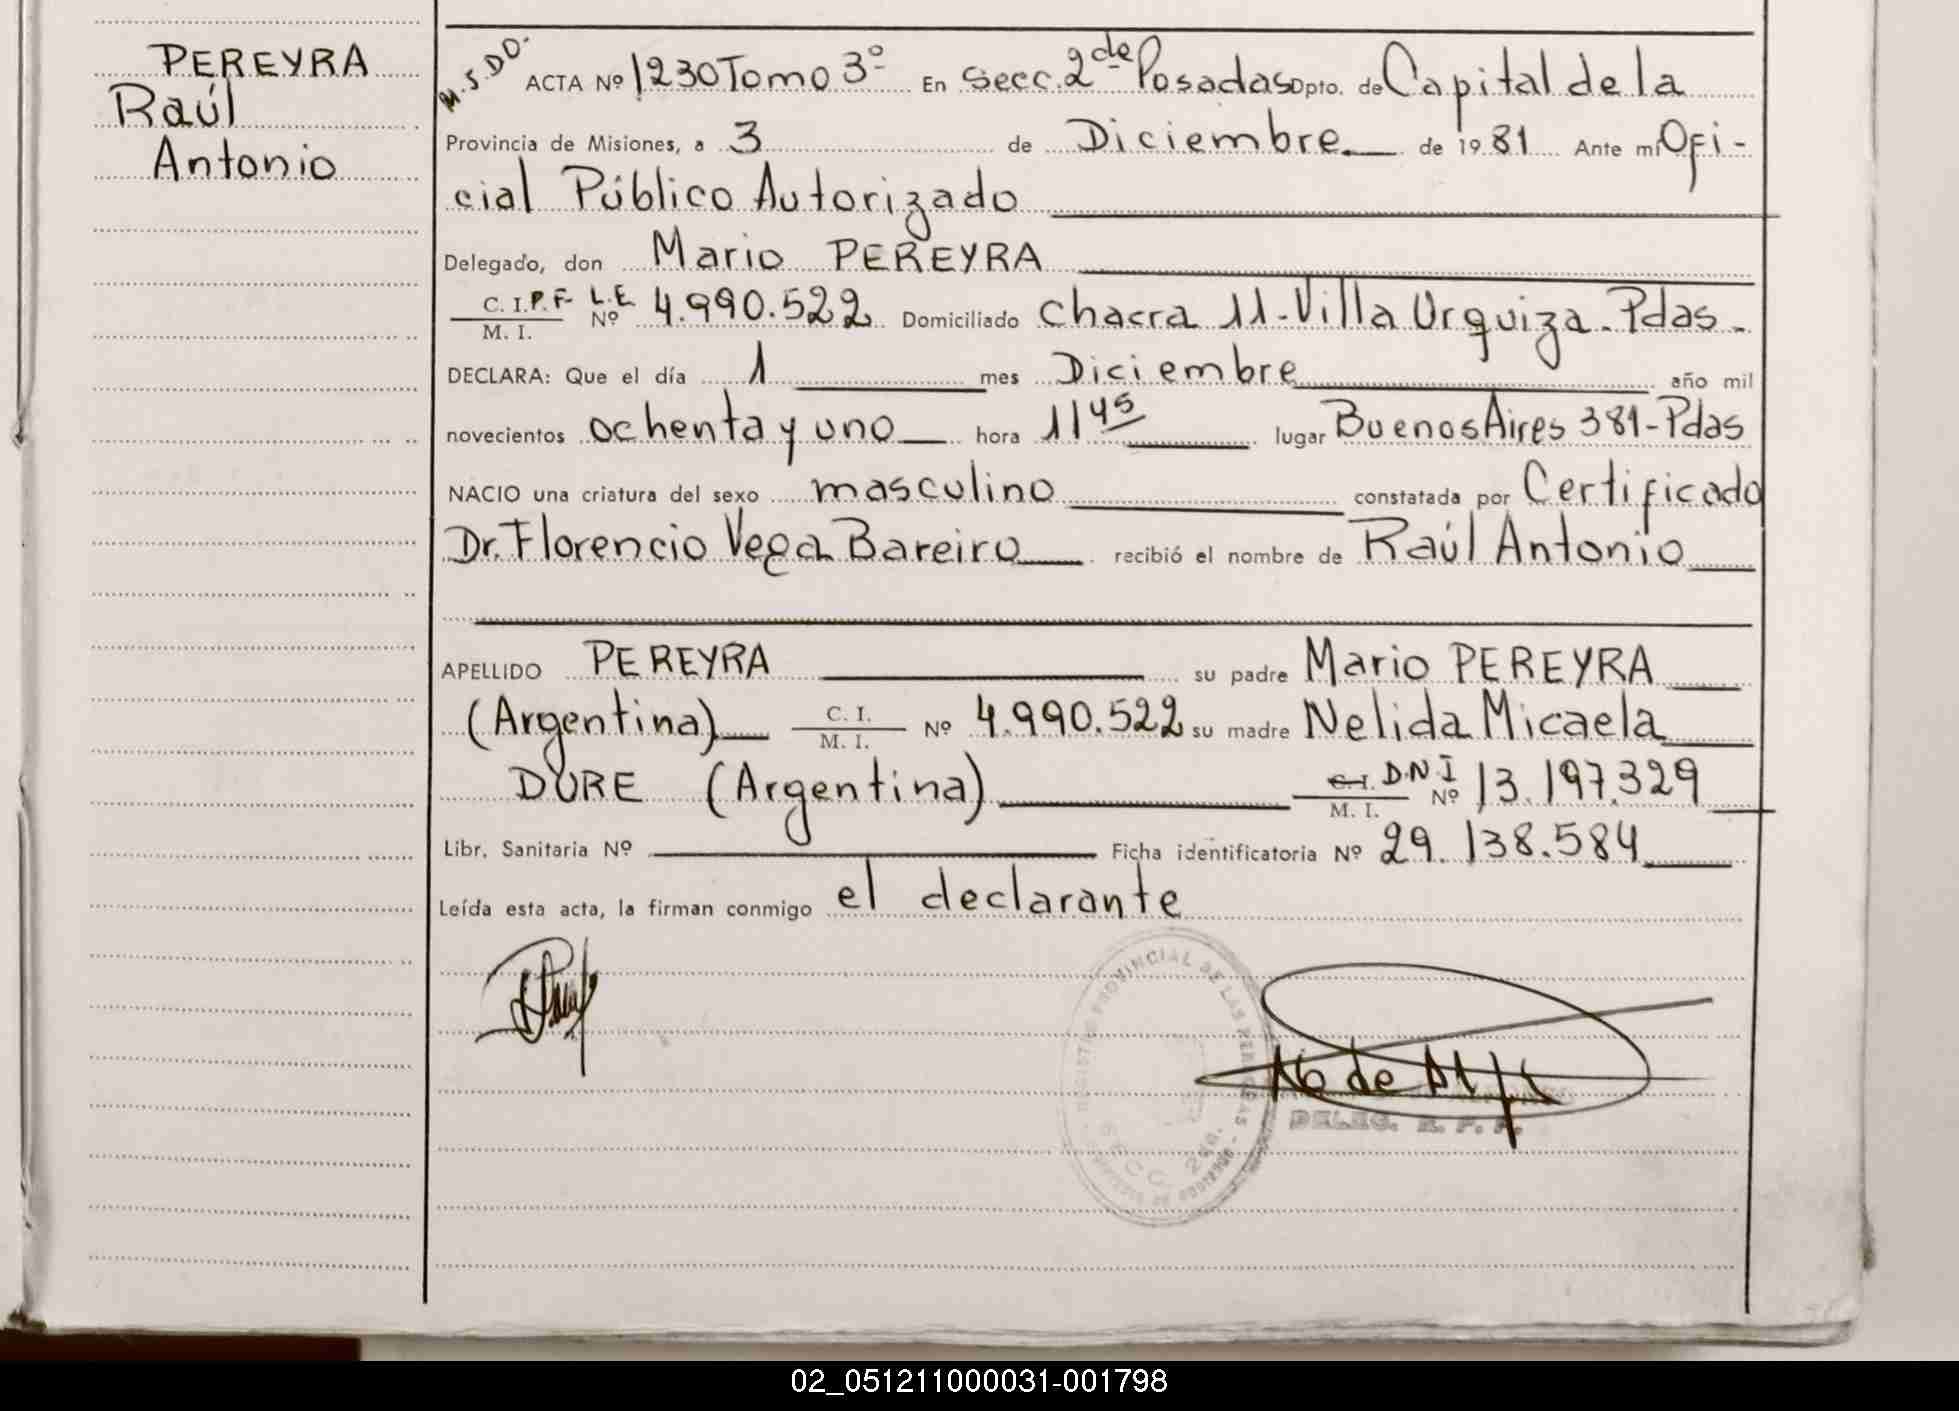 PEREYRA
Raúl
Antonio
M.S.D.D.
ACTA Nº 1230 Tomo 3º En Secc. 2da Posadas Dpto. de Capital de la
Provincia de Misiones, a 3 de Diciembre de 1981 Ante mi Ofi-
cial Público Autorizado
Delegado, don Mario PEREYRA
C. I. P. F. L.E.
M. I. Nº 4.990.522 Domiciliado Chacra 11-Villa Urquiza. Pdas.
DECLARA: Que el día 1 mes Diciembre año mil
novecientos ochenta y uno hora 11 45 lugar Buenos Aires 381-Pdas
NACIO una criatura del sexo masculino constatada por Certificado
Dr. Florencio Vega Bareiro recibió el nombre de Raúl Antonio
APELLIDO PEREYRA su padre Mario PEREYRA
(Argentina) C. I. M. I. Nº 4.990.522 su madre Nelida Micaela
DURE (Argentina) C.I. D.N.I M. I. Nº 13.197.329
Libr. Sanitaria Nº Ficha identificatoria Nº 29.138.584
Leída esta acta, la firman conmigo el declarante
REGISTRO PROVINCIAL DE LAS PERSONAS
SECC. 2da.
DELEG. R. P. P.
02_051211000031-001798